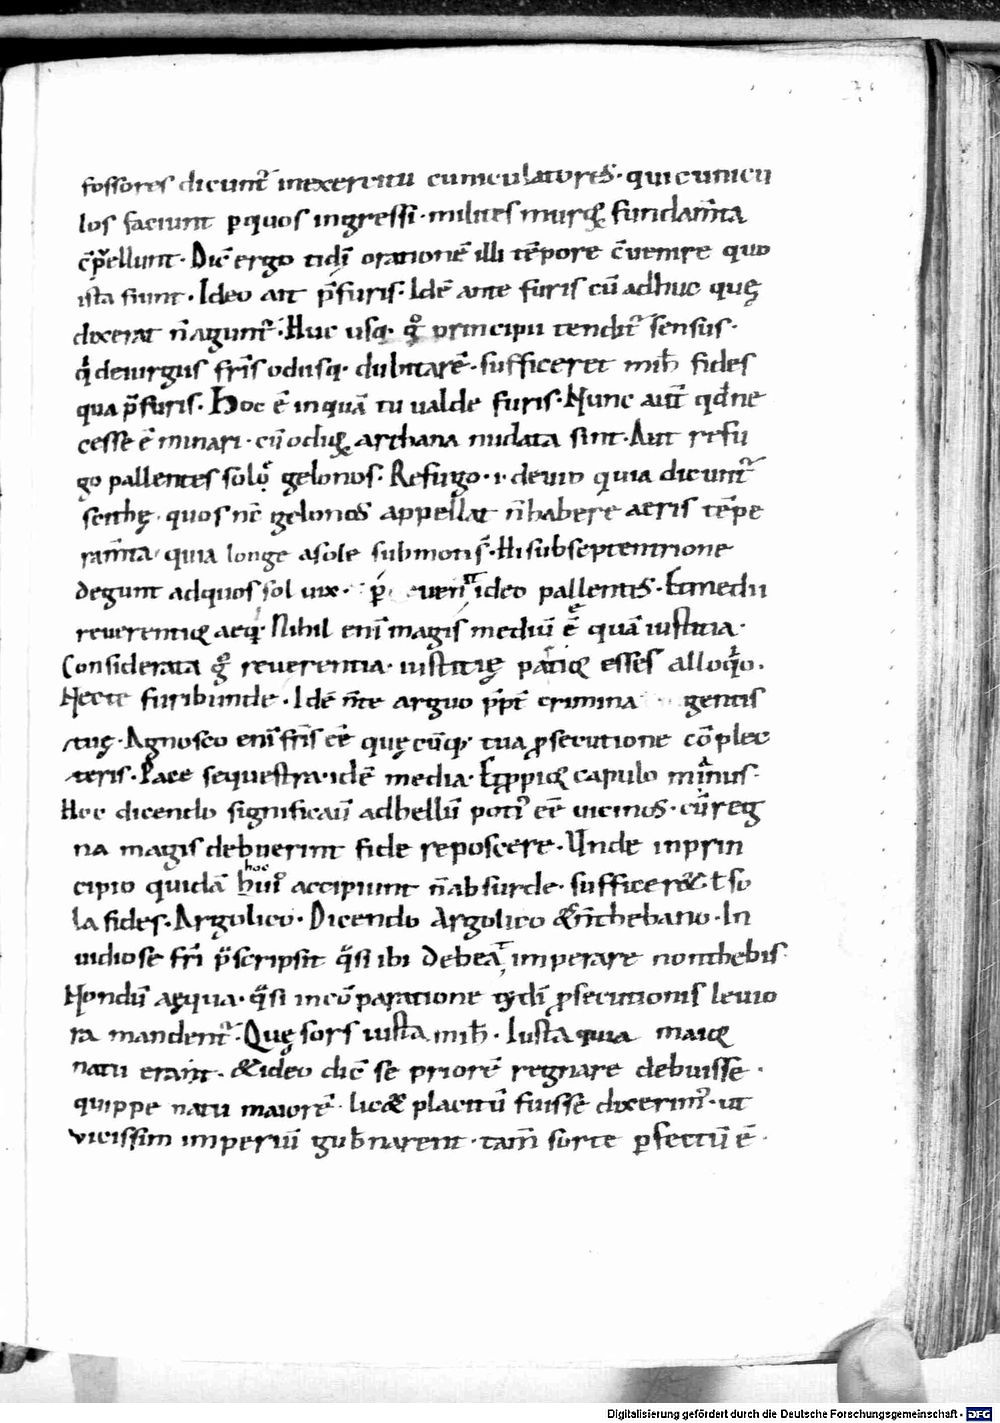 fossores dicunt᷒ inexercitu cuniculatores · qui cunicu
los faciunt ꝑquos ingressi · milites muroꝝ fundam̄ta
c̄p̄ellunt · Dic̄ ergo tidẏ orationē illi tēpore c̄uenire quo
ista fiunt · Ideo ait p̄furis · Idē ante furis cū adhuc quę
dixerat n̄ agunt᷒ · Huc usq · g̊ principii tendit᷒ sensus ·
deiurgiis fr̄is odiisq · dubitarē · sufficeret mihi fides
qua p̄furis · Hoc ē inquā tu ualde furis · Nunc aut̄ qd̄ne
cesse ē minari · cū odiiꝝ archana nudata sint · Aut refu
go pallentes solọ gelonos · Refugo · i · deuio quia dicunt᷒
scithę · quos nc̄ gelonos appellat n̄habere aeris tēpe
ram̄ta quia longe asole submotis · Hi subseptentrione
degunt adquos sol uix · ꝑ uenit ideo pallentes · Et medii
reuerentia aeq · Nihil enī magis mediū ē quā iustitia ·
Considerata g̊ reuerentia · iustitię esses alloq̊o ·
Necte furibunde · Idē n̄te arguo ꝓpt̄ crimina gentis
tuę · Agnosco enī fr̄is eē quęcūq · tua ꝓsecutione cōplec
teris · Pace sequestra · idē media · Et capulo minus ·
Hoc dicendo significauī adbellū poti᷒ eē uicinos · cū reg
na magis debuerint fide reposcere · Unde inprin
cipio quidā hoc accipiunt n̄absurde · sufficer& t so
la fides · Argolico · Dicendo Argolico &n̄thebano · In
uidiose fr̄i p̄scripsit q̄si ibi debeat imperare nonthebis ·
Nondū aequa · q̄si incōparatione tẏdī ꝓsecutionis leuio
ra mandent᷒ · Quę sors iusta mihi · Iusta quia maior
natu erant · &ideo dic̄ se priorē regnare debuisse ·
quippe natu maiorē · lic& placitū fuisse dixerim᷒ · ut
vicissim imperiū gub̄narent · tam̄ sorte ꝑfectū ē ·
Digitalisierung gefördert durch die Deutsche Forschungsgemeinschaft - DFG